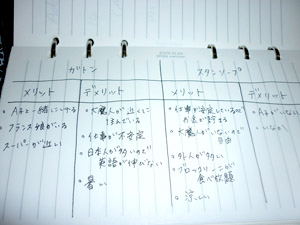 ガトン
スタンソープ
メリット
デメリット
メリット
デメリット
Aキと一緒にいける
フランス娘がいる
スーパーが近い
大魔人が近くに
住んでいる
仕事が不安定
日本人が多いので
英語が伸びない
暑い
仕事が安定しているので
お金が貯まる
大魔人がいないので
自由
外人が多い
ブロッコリーが
食べ放題
涼しい
Aキがいない